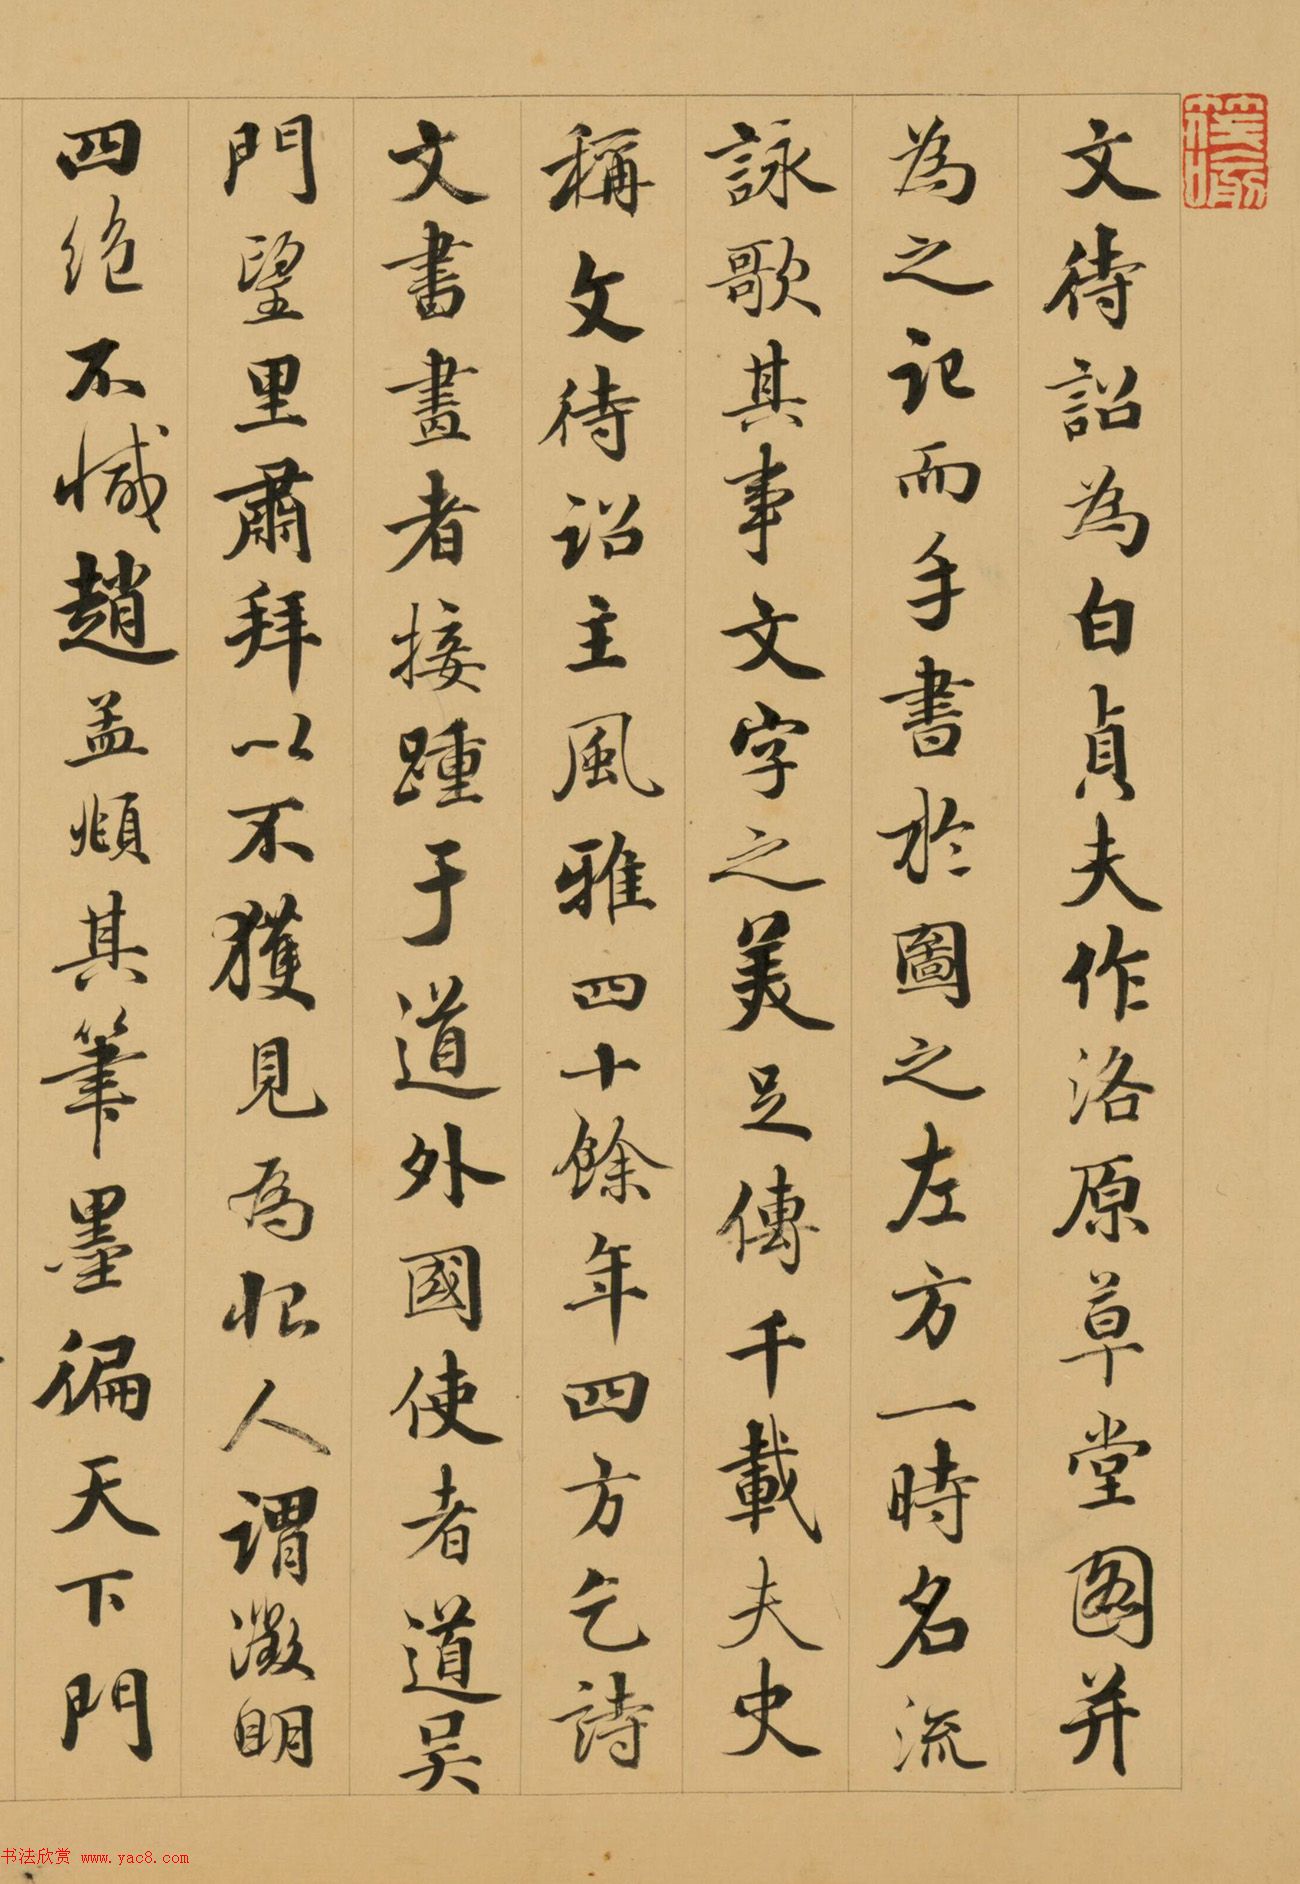 文待詔為白貞夫作洛原草堂圖并
為之記而手書於圖之左方一時名流
詠歌其事文字之美足傳千載夫史
稱文待詔主風雅四十餘年四方乞詩
文書畫者接踵于道外國使者道吳
門望里肅拜以不獲見為恨人謂徵明
四絕不憾趙孟頫其筆墨徧天下門
书法欣赏 www.yac8.com